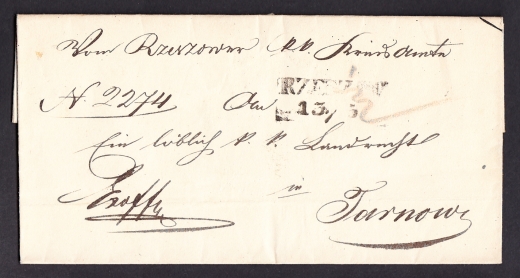 Vom Rzeszower k k Kreisamte
N 2274 An
RZESZOW
13/5
Ein löblich k. k. Landrecht
in
Exoffo Tarnow